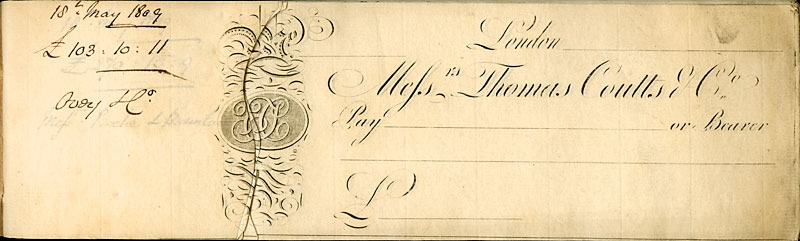 18th May 1809
£ 103 : 10 : 11
Ovey & Co.
London
Messrs. Thomas Coutts & Co.
Pay or Bearer
£